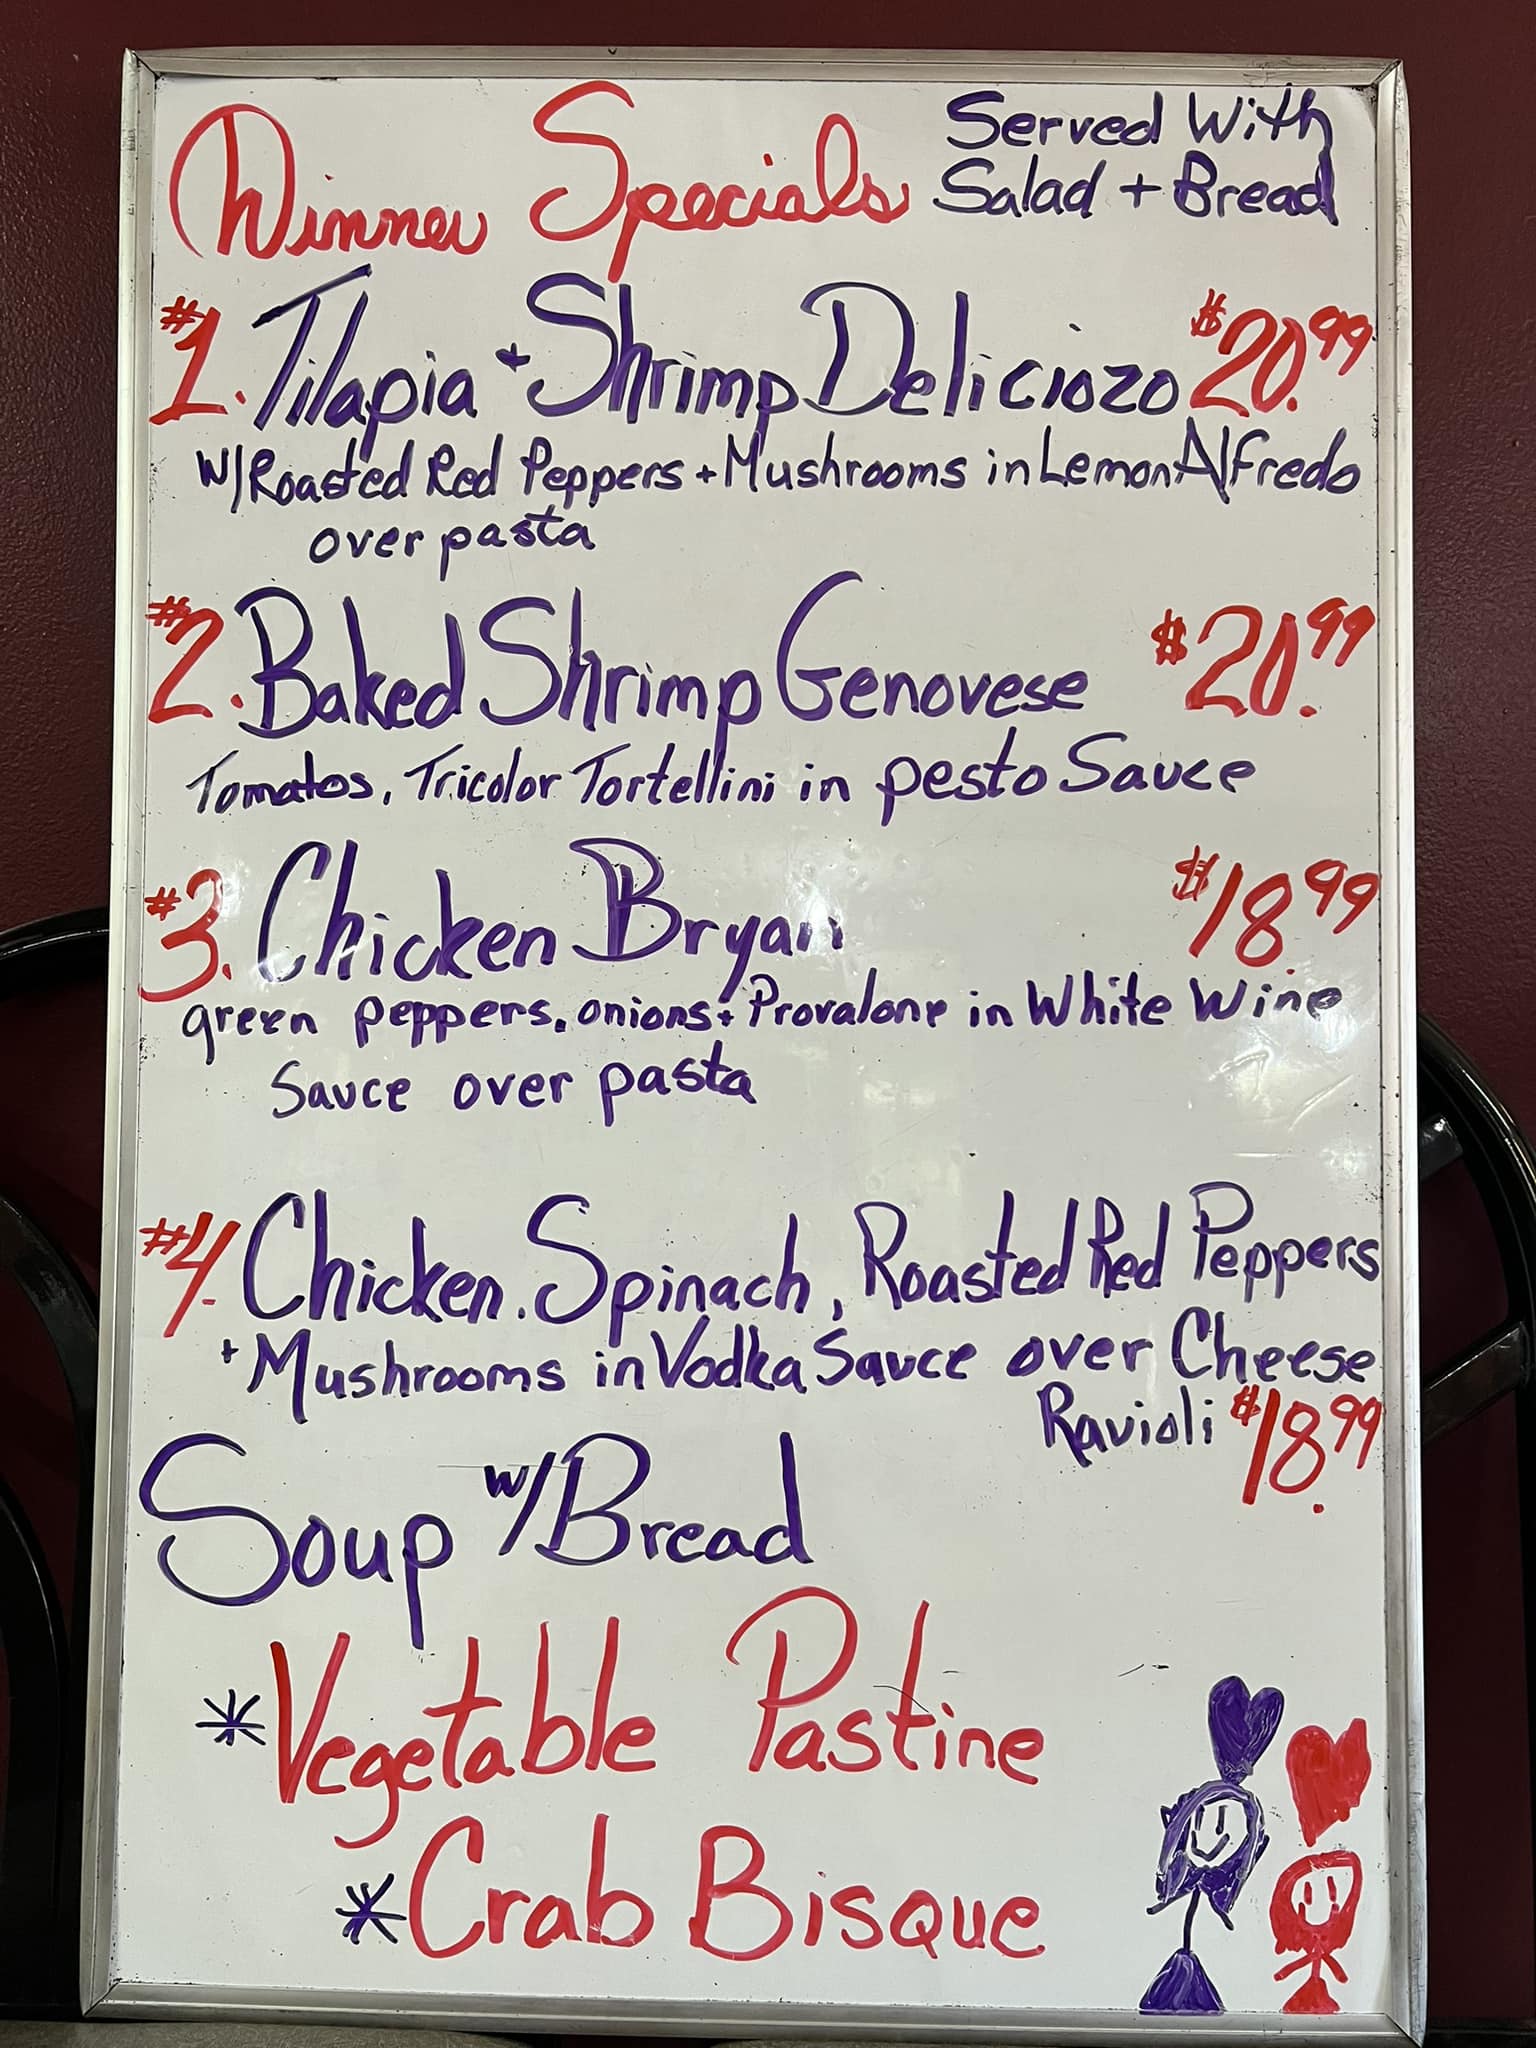 Dinner Specials Served With
Salad + Bread
#1. Tilapia + Shrimp Deliciozo $20.99
w/Roasted Red Peppers + Mushrooms in Lemon Alfredo
over pasta
#2. Baked Shrimp Genovese $20.99
Tomatos, Tricolor Tortellini in pesto Sauce
#3. Chicken Bryan $18.99
green peppers, onions + Provalone in White Wine
Sauce over pasta
#4. Chicken, Spinach, Roasted Red Peppers
+ Mushrooms in Vodka Sauce over Cheese
Ravioli $18.99
Soup w/Bread
*Vegetable Pastine
*Crab Bisque